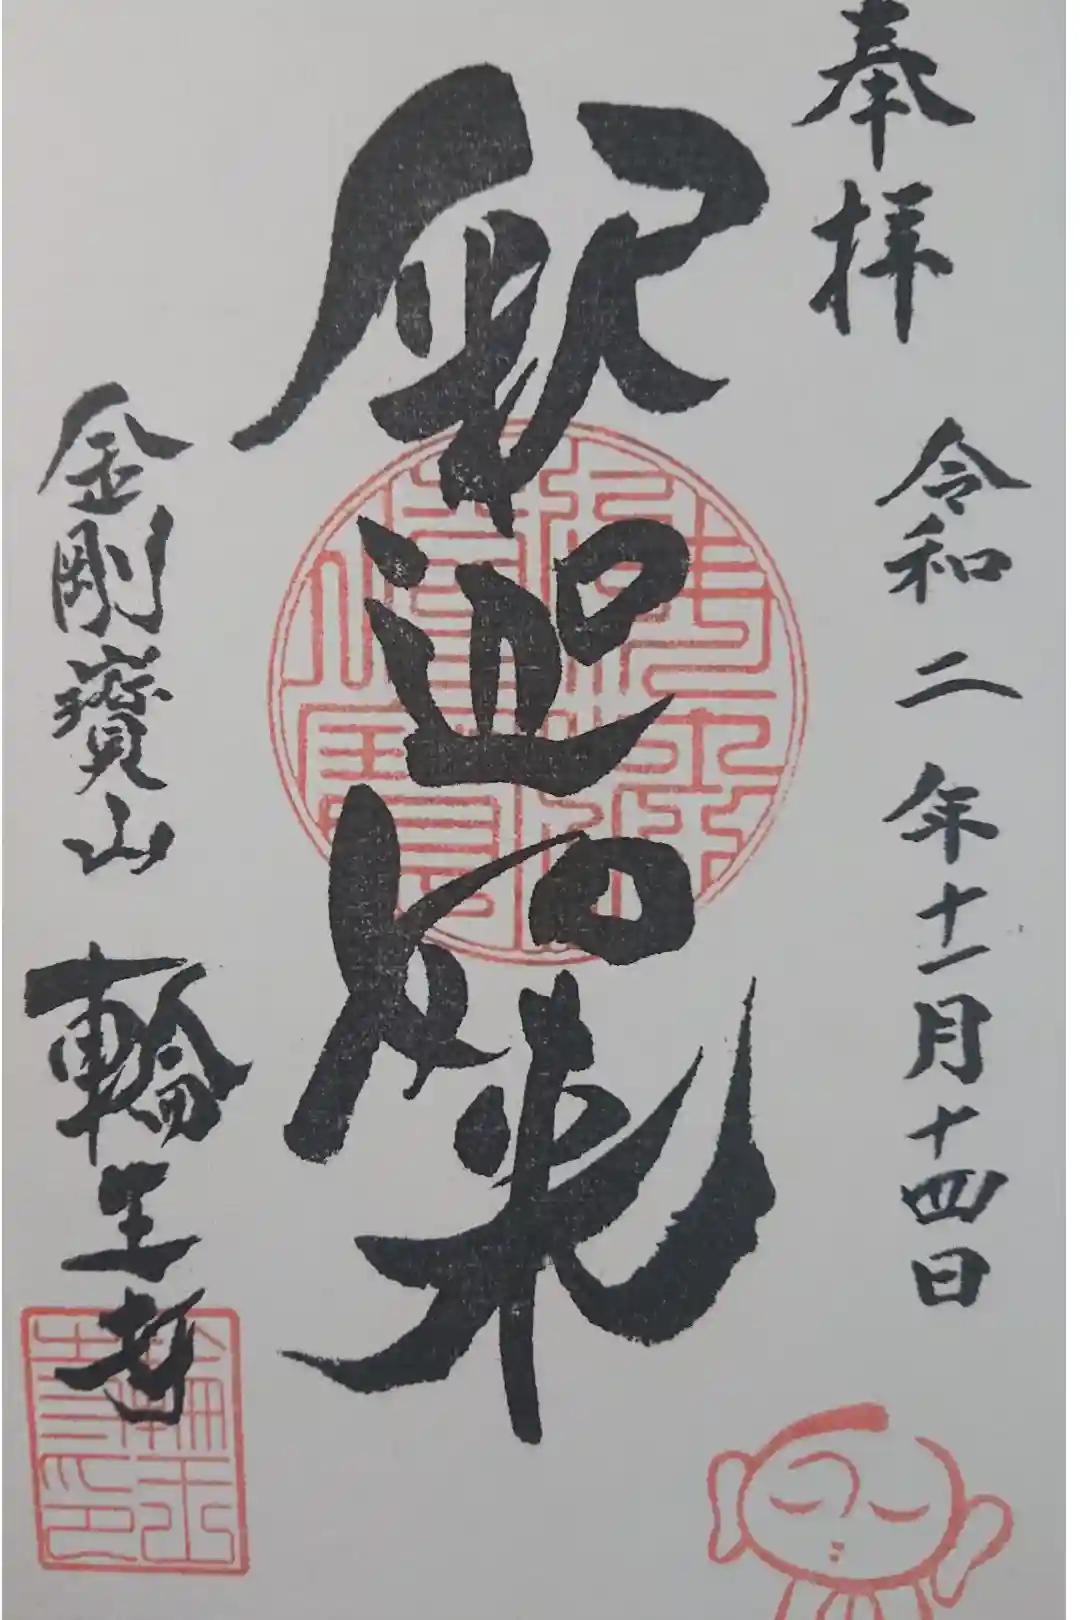 奉拝
令和二年十一月十四日
釈迦如来
金剛寶山 輪王寺
輪王
寺印